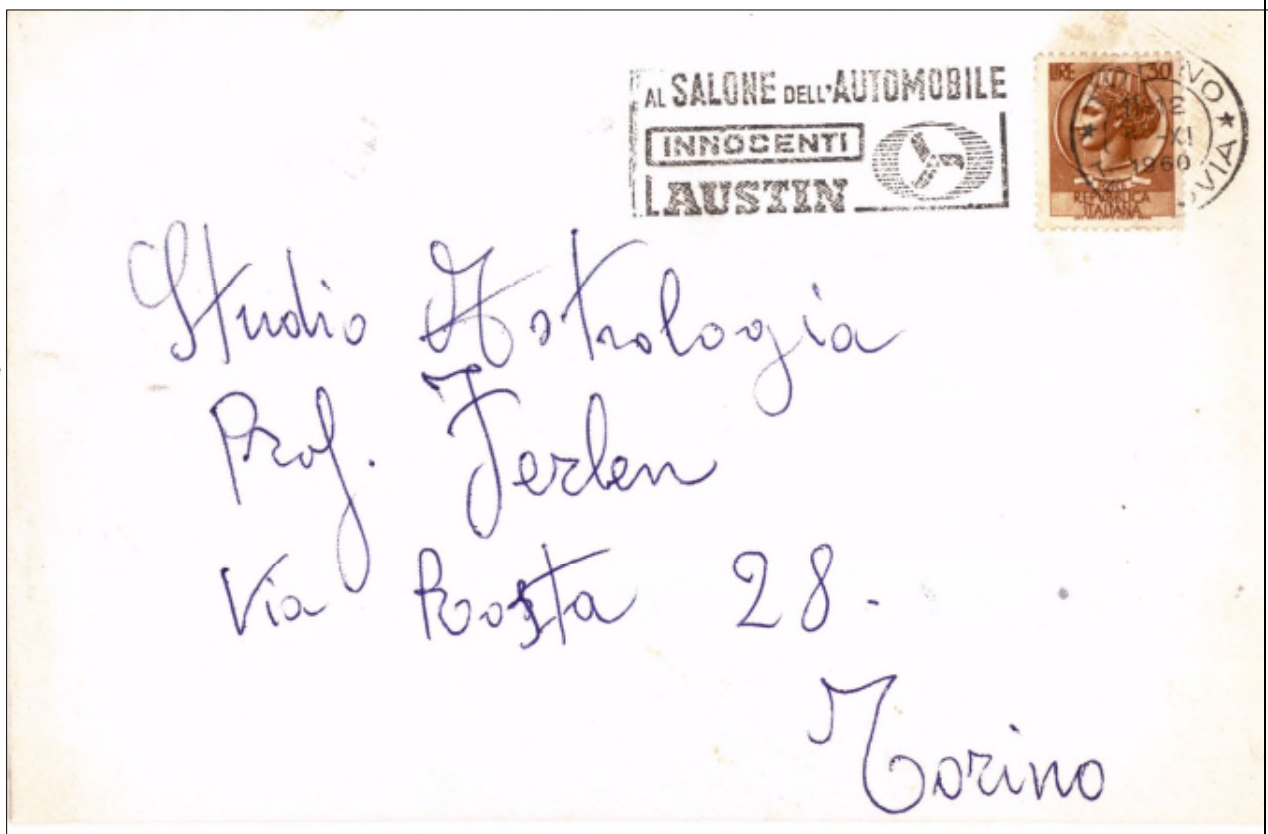 AL SALONE DELL'AUTOMOBILE
INNOCENTI
AUSTIN
LIRE 30
11-12
XI
1960
REPUBBLICA
ITALIANA
Studio Astrologia
Prof. Ferlen
Via Rosta 28.
Torino